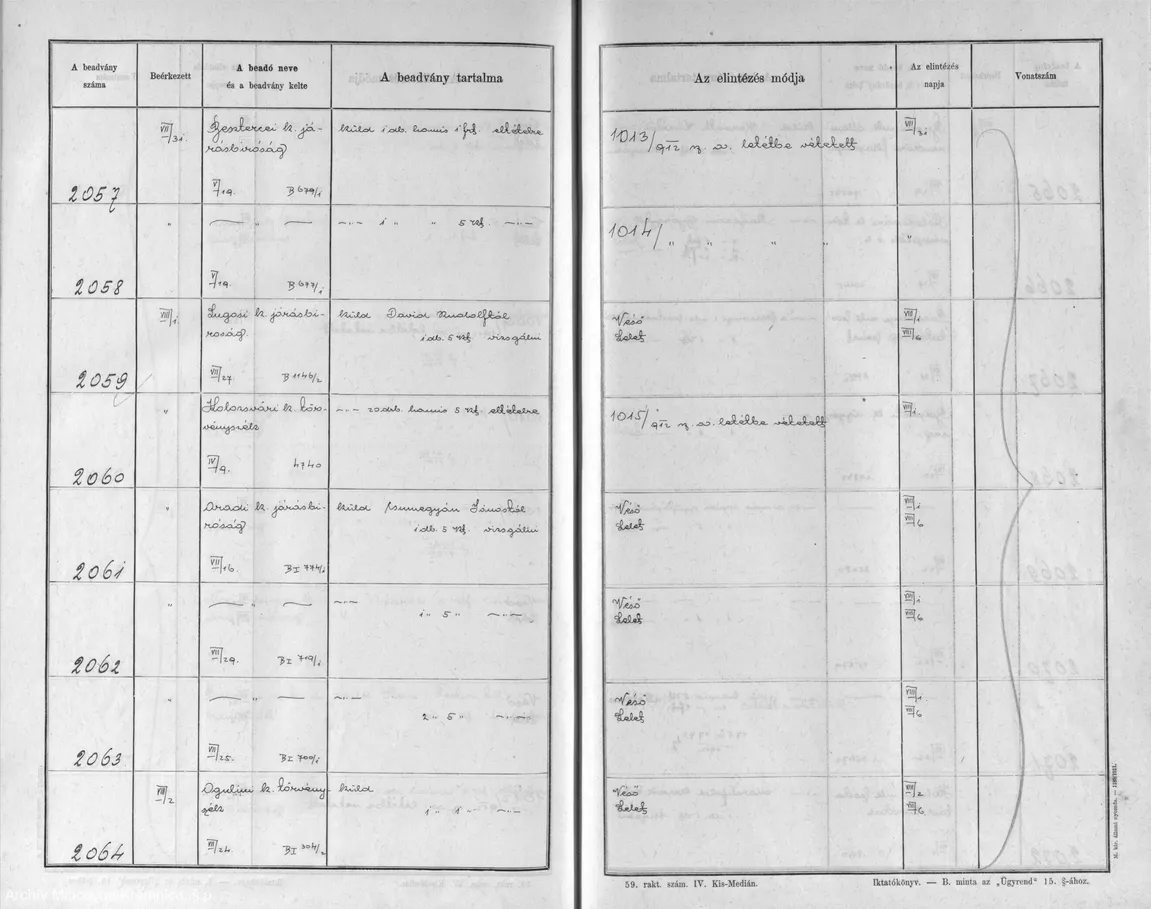 A beadvány száma
Beérkezett
A beadó neve és a beadvány kelte
A beadvány tartalma
Az elintézés módja
Az elintézés napja
Vonatszám
2057
VII/31.
Beszterczei k. já-
rásbiróság
V/19. B 679/1
küld 1 db. hamis 1 frt. eltételre
1013/912 n. a. letétbe vétetett
VII/31
2058
" — " —
V/19. B 677/1
—"— 1 " " 5 K —"—
1014/ " " " "
"
2059
VIII/1
Lugosi k. járásbi-
róság
VII/27 B 1146/2
küld David Rudolftól
1 db. 5 K vizsgálni
Véső
Lelet
VIII/1
VIII/6
2060
"
Kolozsvári k. tör-
vényszék
IV/9. 4740
—"— 20 drb. hamis 5 K eltételre
1015/912 n. a. letétbe vétetett
VIII/1.
2061
"
Aradi k. járásbi-
róság
VII/16. BI 774/1
küld Jánostól
1 db. 5 K vizsgálni
Véső
Lelet
VIII/1
VIII/6
2062
" — " —
VII/29. BI 719/1
—"—
1 " 5 " —"—
Véső
Lelet
VIII/1.
VIII/6.
2063
" — " —
VII/25. BI 700/1
—"—
2 " 5 " —"—
Véső
Lelet
VIII/1
VIII/6
2064
VIII/2
Ogulini k. törvény-
szék
VII/24. BI 304/2
küld
1 " 1 " —"—
Véső
Lelet
VIII/2
VIII/6
59. rakt. szám. IV. Kis-Medián.
Iktatókönyv. — B. minta az „Ügyrend" 15. §-ához.